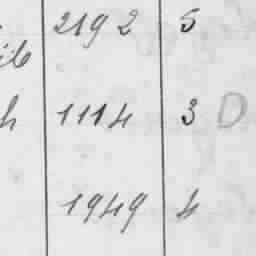 2192 5
1114 3 D
1949 4